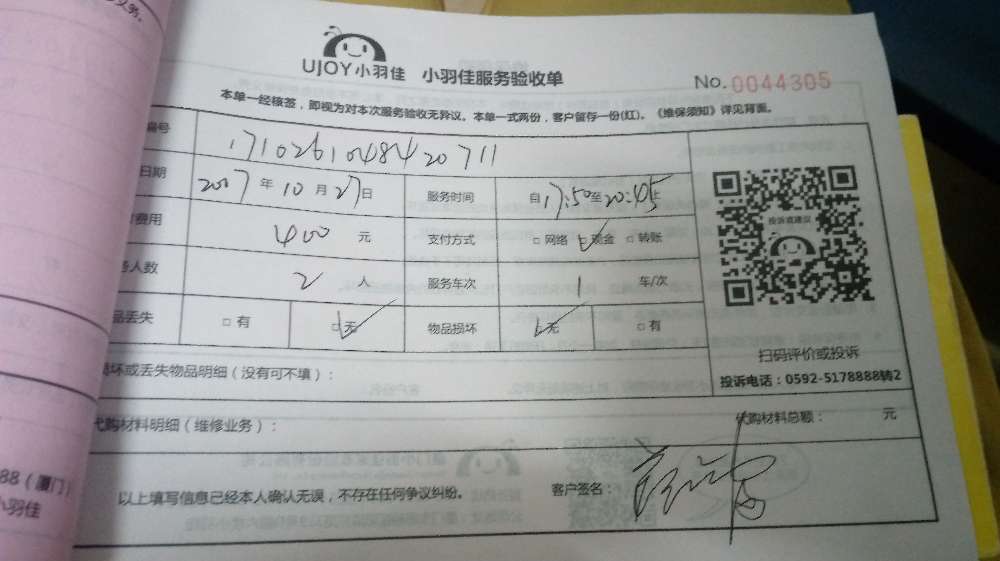 UJOY小羽佳 小羽佳服务验收单
No. 0044305
本单一经核签，即视为对本次服务验收无异议。本单一式两份，客户留存一份(红)。《维保须知》详见背面。
编号 1710261048420711
日期 2007年10月27日 服务时间 自17:50至20:45止
费用 400元 支付方式 □网络 ☑现金 □转账
人数 2人 服务车次 1车/次
品丢失 □有 ☑无 物品损坏 ☑无 □有
投诉或建议
扫码评价或投诉
投诉电话：0592-5178888转2
坏或丢失物品明细（没有可不填）：
代购材料明细（维修业务）： 代购材料总额： 元
以上填写信息已经本人确认无误，不存在任何争议纠纷。 客户签名：
88（厦门）
小羽佳